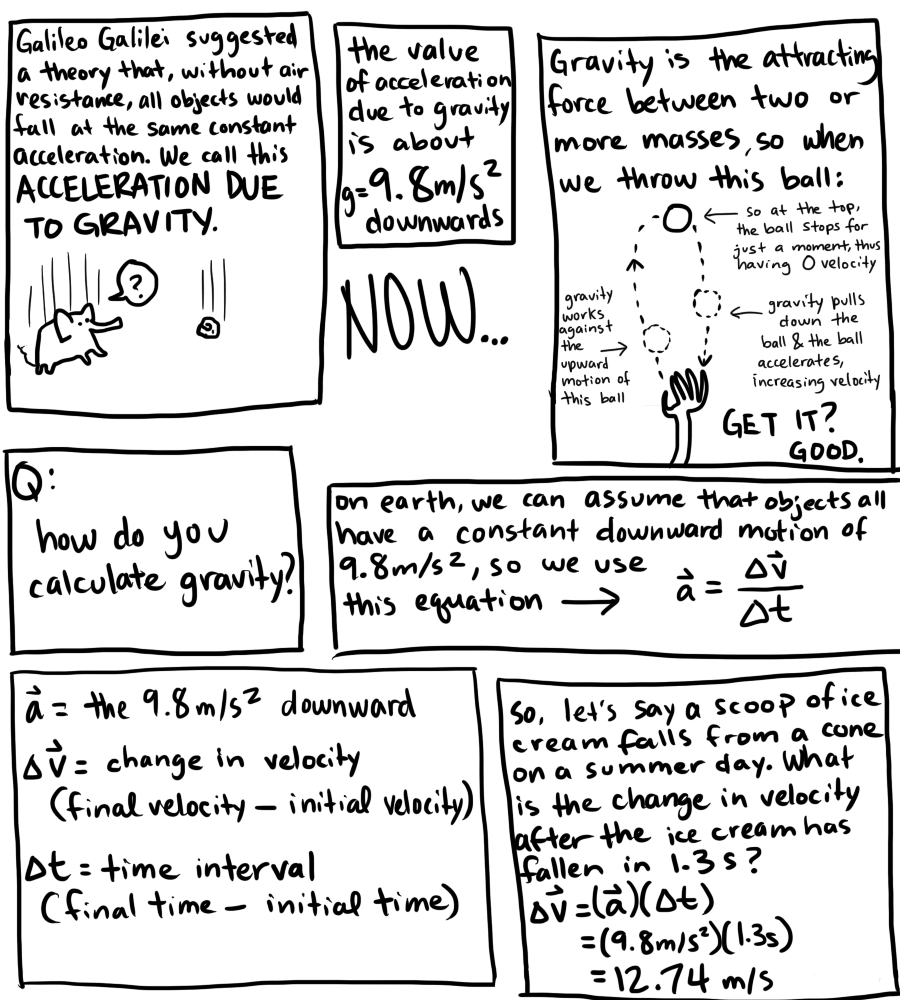 Galileo Galilei suggested
a theory that, without air
resistance, all objects would
fall at the same constant
acceleration. We call this
ACCELERATION DUE
TO GRAVITY.
?
the value
of acceleration
due to gravity
is about
g=9.8m/s²
downwards
NOW...
Gravity is the attracting
force between two or
more masses, so when
we throw this ball:
so at the top,
the ball stops for
just a moment, thus
having 0 velocity
gravity
works
against
the
upward
motion of
this ball
gravity pulls
down the
ball & the ball
accelerates,
increasing velocity
GET IT?
GOOD.
Q:
how do you
calculate gravity?
on earth, we can assume that objects all
have a constant downward motion of
9.8m/s², so we use
this equation → a⃗ = Δv⃗/Δt
a⃗ = the 9.8m/s² downward
Δv⃗ = change in velocity
(final velocity – initial velocity)
Δt = time interval
(final time – initial time)
So, let's say a scoop of ice
cream falls from a cone
on a summer day. What
is the change in velocity
after the ice cream has
fallen in 1.3s?
Δv⃗ =(a⃗)(Δt)
=(9.8m/s²)(1.3s)
=12.74 m/s